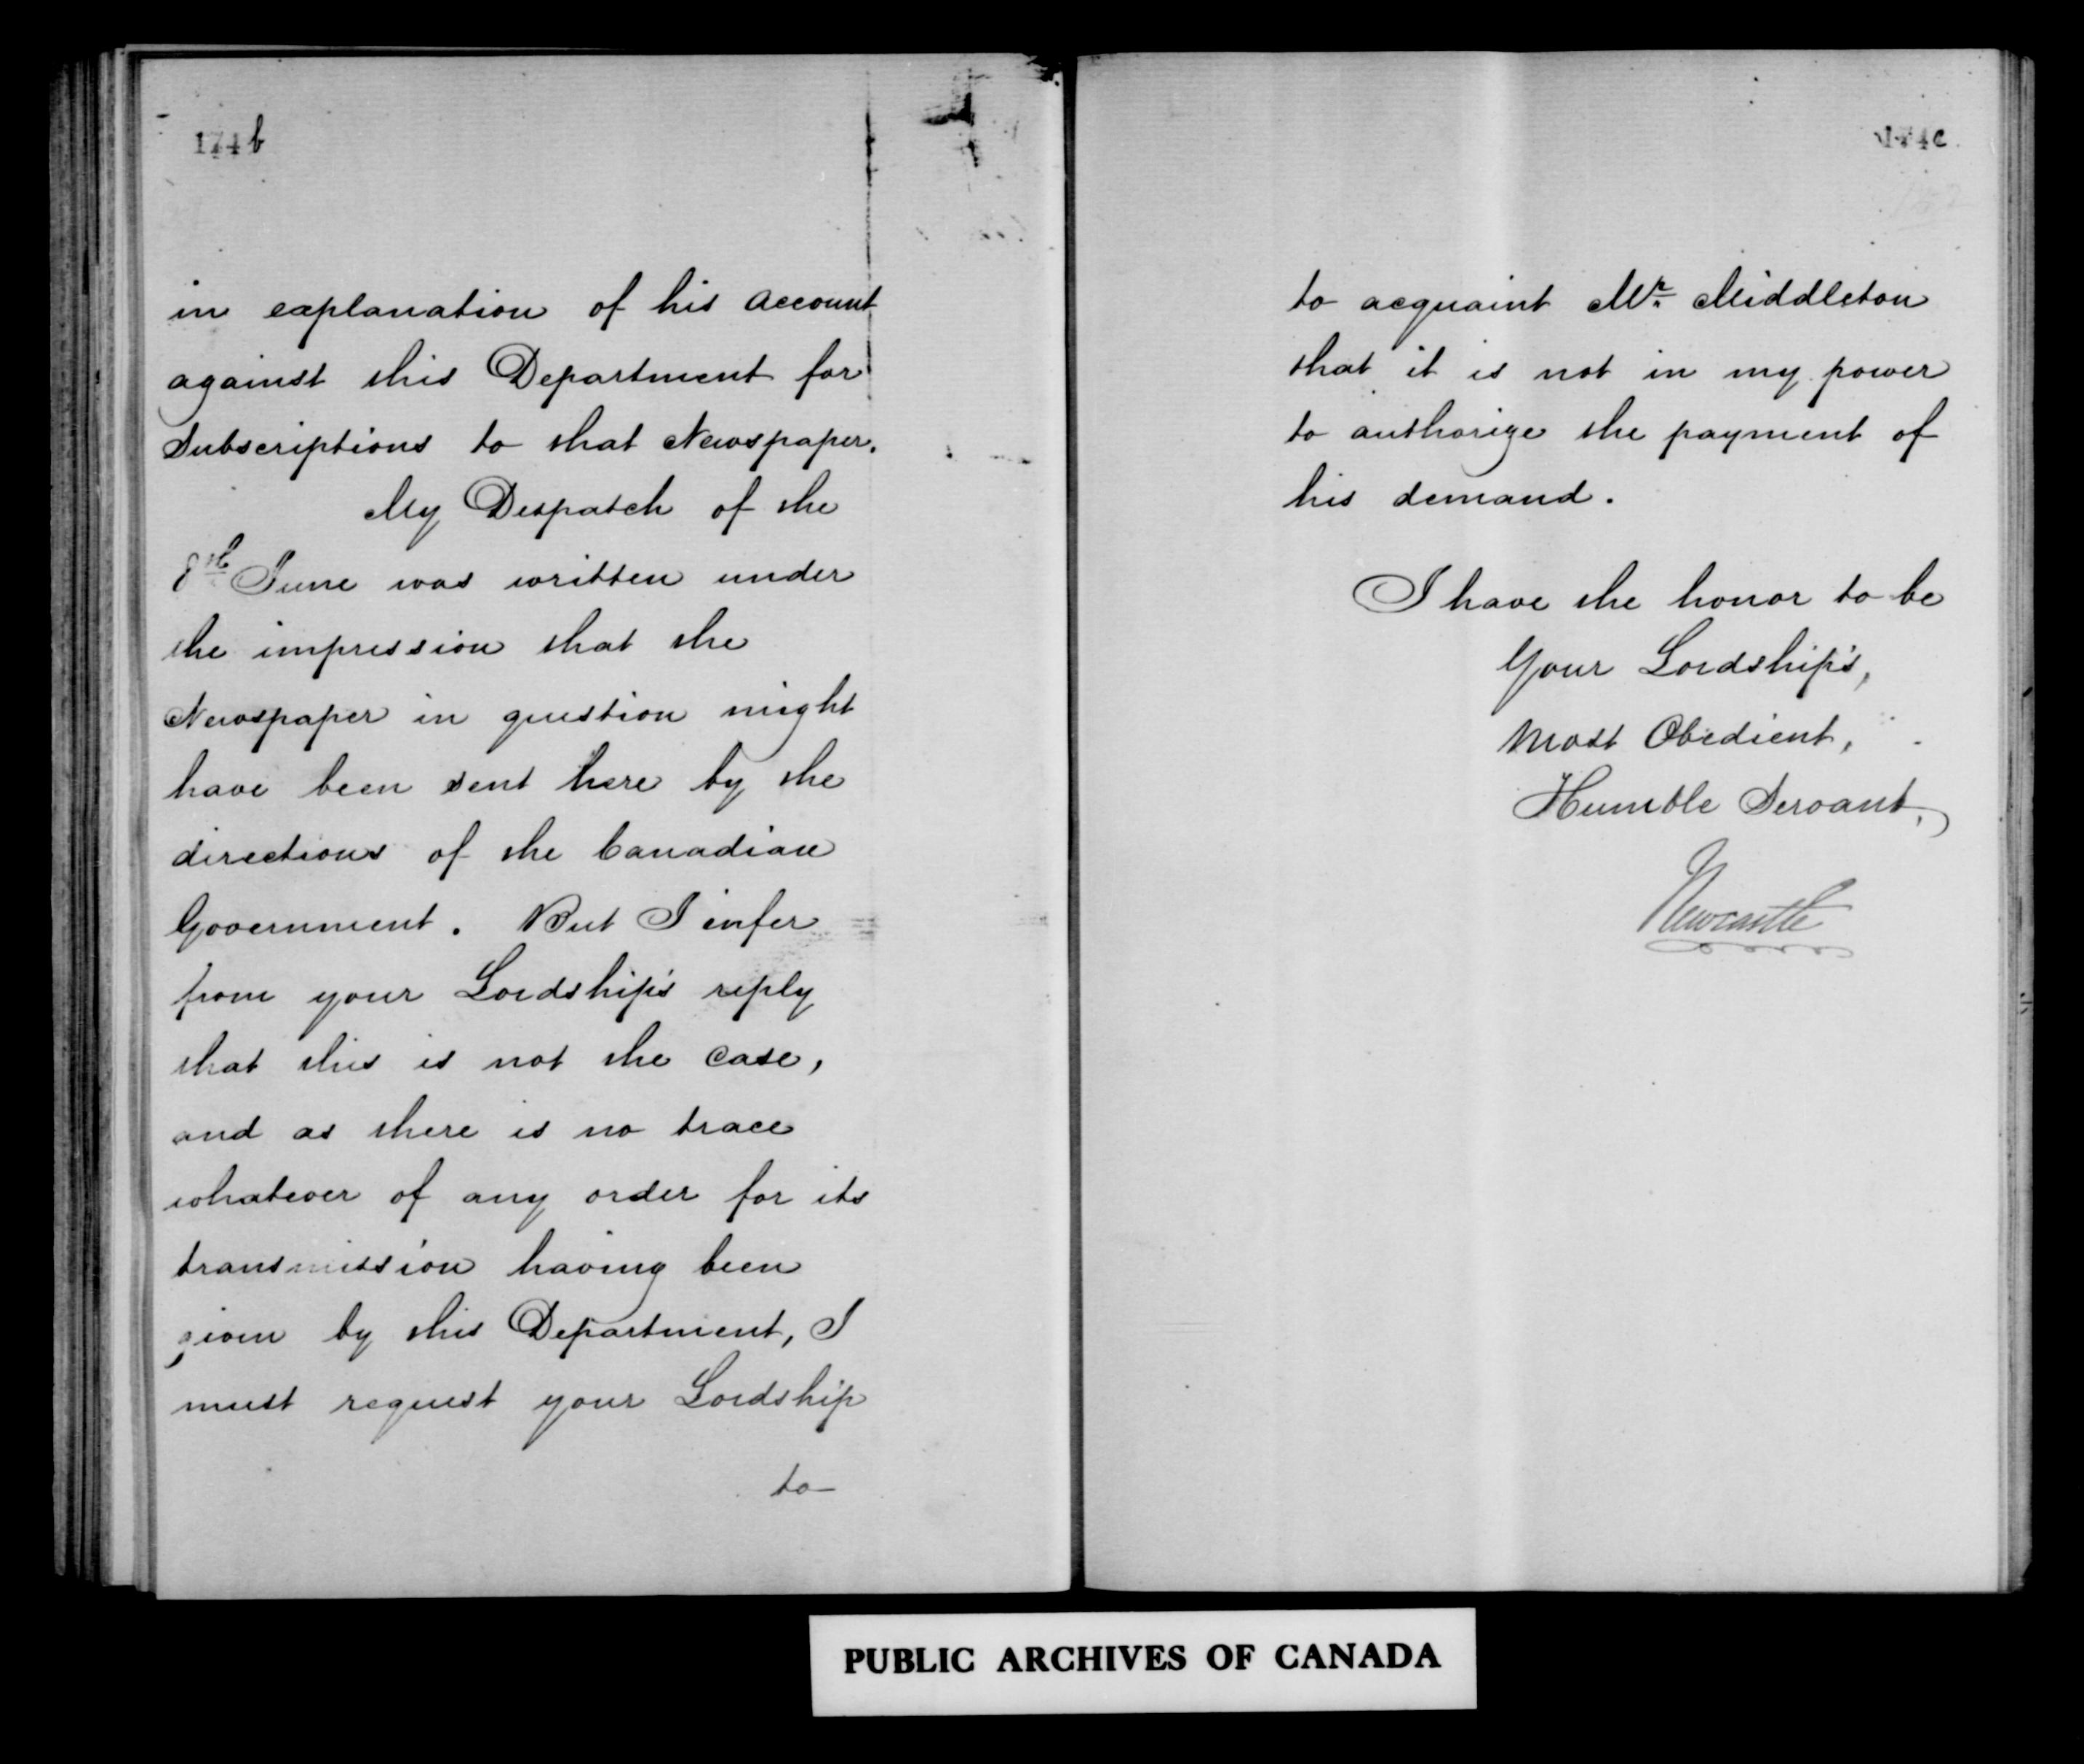 174b
in explanation of his account
against this Department for
Subscriptions to that Newspaper.
My Despatch of the
8th June was written under
the impression that the
Newspaper in question might
have been sent here by the
directions of the Canadian
Government. But I infer
from your Lordship's reply
that this is not the case,
and as there is no trace
whatever of any order for its
transmission having been
given by this Department, I
must request your Lordship
to
174c
to acquaint Mr. Middleton
that it is not in my power
to authorize the payment of
his demand.
I have the honor to be
Your Lordship's,
Most Obedient,
Humble Servant,
Newcastle
PUBLIC ARCHIVES OF CANADA